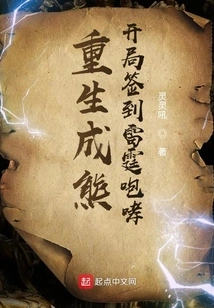 重生成熊
开局签到雷霆咆哮
灵灵吼 著
起点中文网